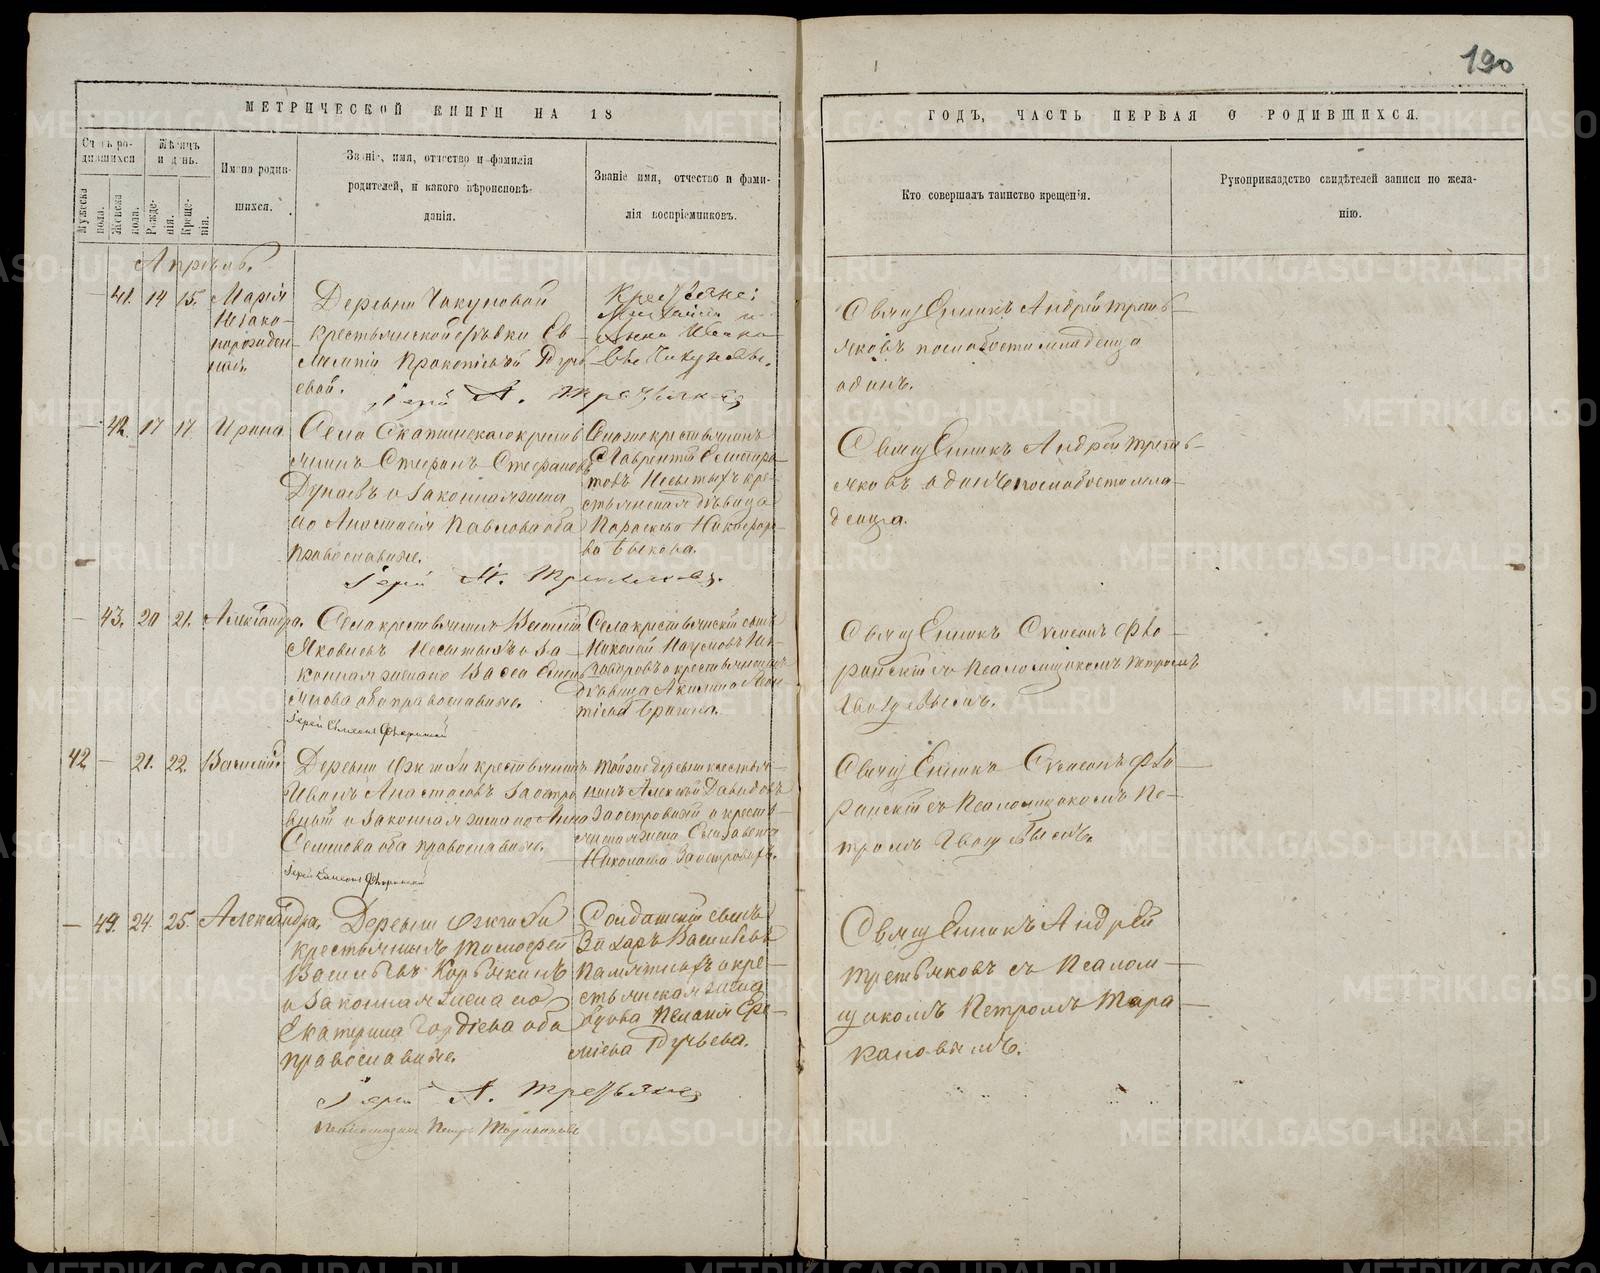 190
МЕТРИЧЕСКОЙ КНИГИ НА 18
ГОДЪ, ЧАСТЬ ПЕРВАЯ О РОДИВШИХСЯ.
Счетъ родившихся
Мужеска пола.
Женска пола.
Мѣсяцъ и день.
Рожденія.
Крещенія.
Имена родившихся.
Званіе, имя, отчество и фамилія
родителей, и какого вѣроисповѣ-
данія.
Званіе имя, отчество и фами-
лія воспріемниковъ.
Кто совершалъ таинство крещенія.
Рукоприкладство свидѣтелей записи по жела-
нію.
Апрѣль.
— 41. 14 15. Марія
Незако-
норожден-
ная.
Деревни Чикуновой
крестьянской дѣвки Ев
Прокопьевой
Іерей А. Третьяковъ
Крестьяне:
и
Анна Ивано
вы Чикуновы.
Священникъ Андрей Треть-
яковъ послабости младенца
одинъ.
— 42. 17 17. Ирина
Села Скатинскаго крестья
нинъ Стефанъ Стефановъ
Дунаевъ и законная жена
его Анастасія Павлова оба
православные.
Іерей А. Третьяковъ.
Тогоже крестьянинъ
Лаврентій
товъ Несытыхъ кре-
стьянская дѣвица
Параскева Никифоро-
ва Быкова.
Священникъ Андрей Треть-
яковъ одинъ послабости мла-
денца.
— 43. 20 21. Александра.
Села крестьянинъ Василій
Яковлевъ Несытыхъ и за-
конная жена его Васса Семе
нова оба православные.
Іерей Симеонъ Флоринскій
Села крестьянскій сынъ
Николай Наумовъ
и крестьянская
дѣвица Акилина
Священникъ Сѵмеонъ Фло-
ринскій съ Псаломщикомъ Петромъ
Гвоздевымъ.
42 — 21. 22. Василій.
крестьянинъ
Иванъ Анастасовъ Заостро
вный и законная жена его Анна
Семенова оба православные.
Іерей Симеонъ Флоринскій
Тойже деревни крестья-
нинъ Алексѣй Давидовъ
Заостровный и кресть-
янская жена Елизавета
Николаева Заостровныхъ.
Священникъ Сѵмеонъ Фло-
ринскій съ Псаломщикомъ Пе-
тромъ Гвоздевымъ.
— 49. 24. 25. Александра.
Деревни
крестьянинъ Тимофей
Васильевъ Коробкинъ
и законная жена его
Екатерина Гордіева оба
православные.
Іерей А. Третьяковъ
Псаломщикъ Петръ Таракановъ
Солдатскій сынъ
Захаръ Васильевъ
Памятныхъ и кре-
стьянская жена
вдова Пелагія Ере-
міева Пучьева.
Священникъ Андрей
Третьяковъ съ Псалом-
щикомъ Петромъ Тара-
кановымъ.
METRIKI.GASO-URAL.RU